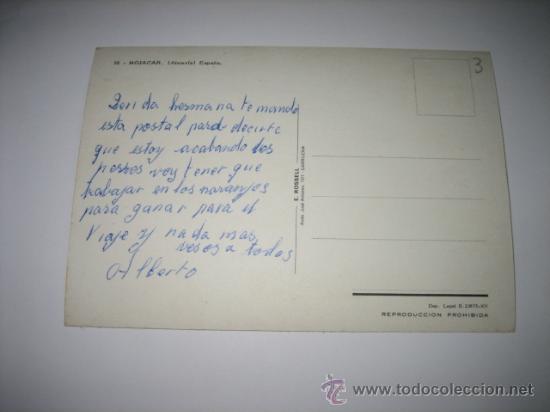 58 - MOJACAR. (Almería) España.
3
Querida hermana te mando
esta postal para decirte
que estoy acabando los
pesos voy tener que
trabajar en los naranjos
para ganar para el
viaje y nada mas
vesos a todos
Alberto
E. ROSSELL
Dep. Legal B.
REPRODUCCION PROHIBIDA
www.todocoleccion.net